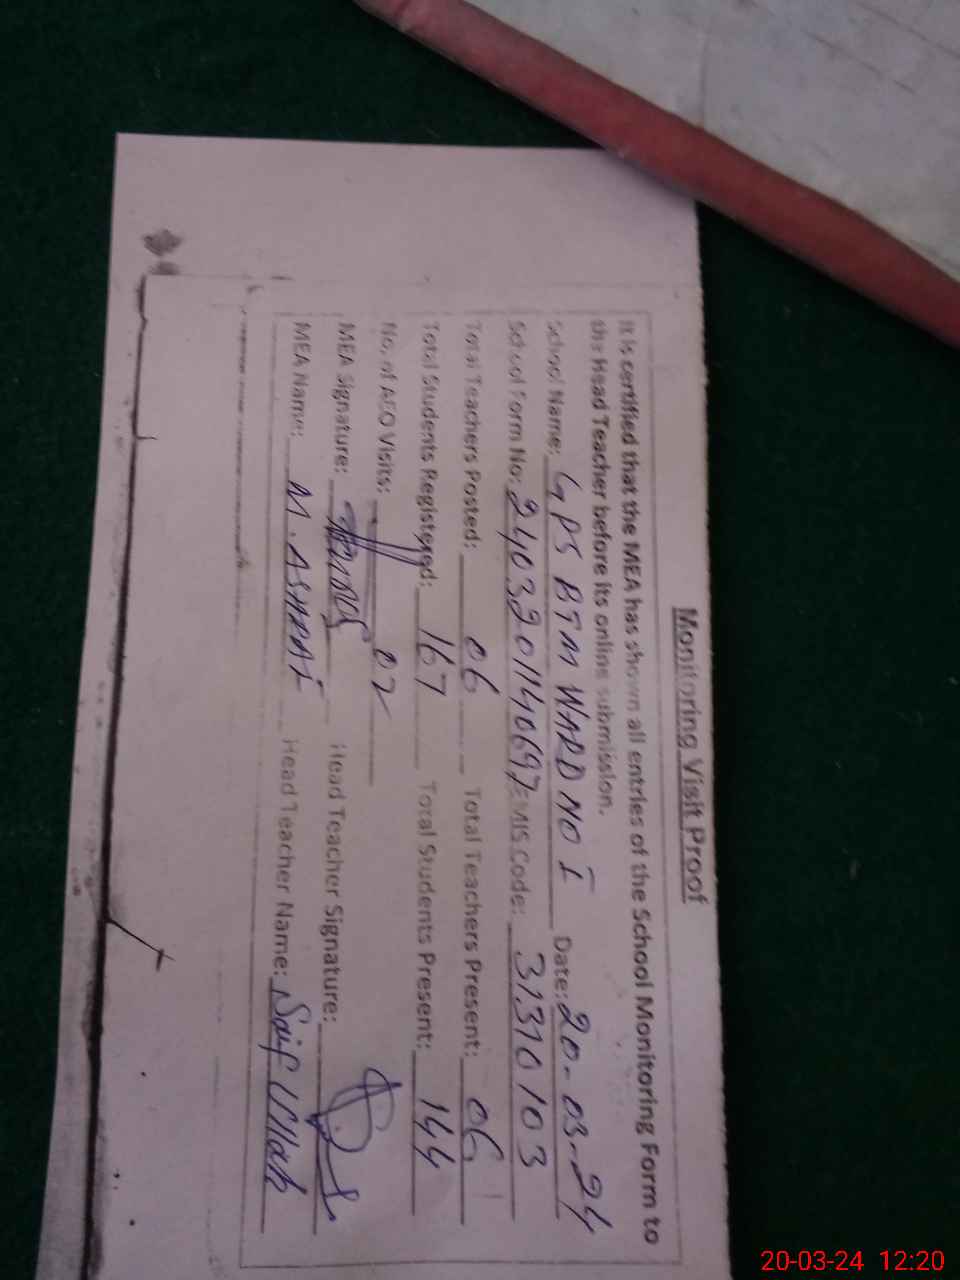 Monitoring Visit Proof
It is certified that the MEA has shown all entries of the School Monitoring Form to
the Head Teacher before its online submission.
School Name: GPS BTM WARD NO I Date: 20-03-24
School Form No: EMIS Code: 31310103
Total Teachers Posted: 06 Total Teachers Present: 06
Total Students Registered: 167 Total Students Present: 144
No. of AEO Visits: 02
MEA Signature: Head Teacher Signature:
MEA Name: M. ASHRAF Head Teacher Name: Saif Ullah
20-03-24 12:20